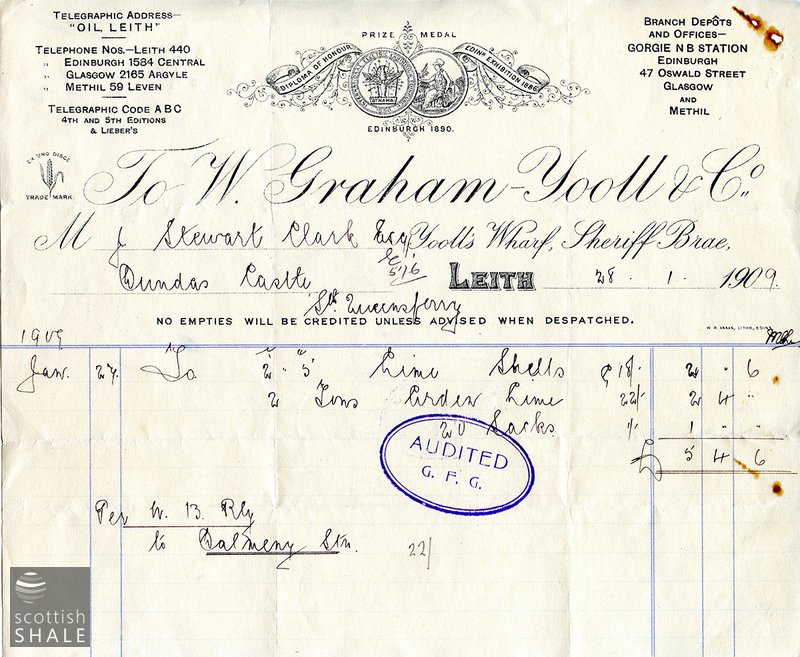 TELEGRAPHIC ADDRESS—
"OIL, LEITH"
TELEPHONE NOS.—LEITH 440
„ EDINBURGH 1584 CENTRAL
„ GLASGOW 2165 ARGYLE
„ METHIL 59 LEVEN
TELEGRAPHIC CODE A B C
4TH AND 5TH EDITIONS
& LIEBER'S
PRIZE MEDAL
DIPLOMA OF HONOUR
EDINR EXHIBITION 1886
EDINBURGH 1890.
BRANCH DEPÔTS
AND OFFICES—
GORGIE N B STATION
EDINBURGH
47 OSWALD STREET
GLASGOW
AND
METHIL
EX UNO DISCE
TRADE MARK
To W. Graham-Yooll & Co.,
M J Stewart Clark Esq Yooll's Wharf, Sheriff Brae,
Dundas Castle 576 LEITH 28 . 1 . 1909.
Sth Queensferry
NO EMPTIES WILL BE CREDITED UNLESS ADVISED WHEN DESPATCHED.
1909
Jan. 27 To 2 " 5 Lime Shells 18/- 2 " 6
2 Tons Arden Lime 22/- 2 4 "
20 Sacks 1/- 1 " "
£ 5 4 6
AUDITED
G. F. G.
Per N. B. Rly
to Dalmeny Stn. 22/
scottish
SHALE